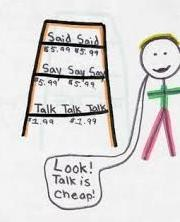 Said Said
$5.99 $5.99
Say Say Say
$5.99 $5.99
Talk Talk Talk
$1.99 $1.99
Look!
Talk is
cheap!